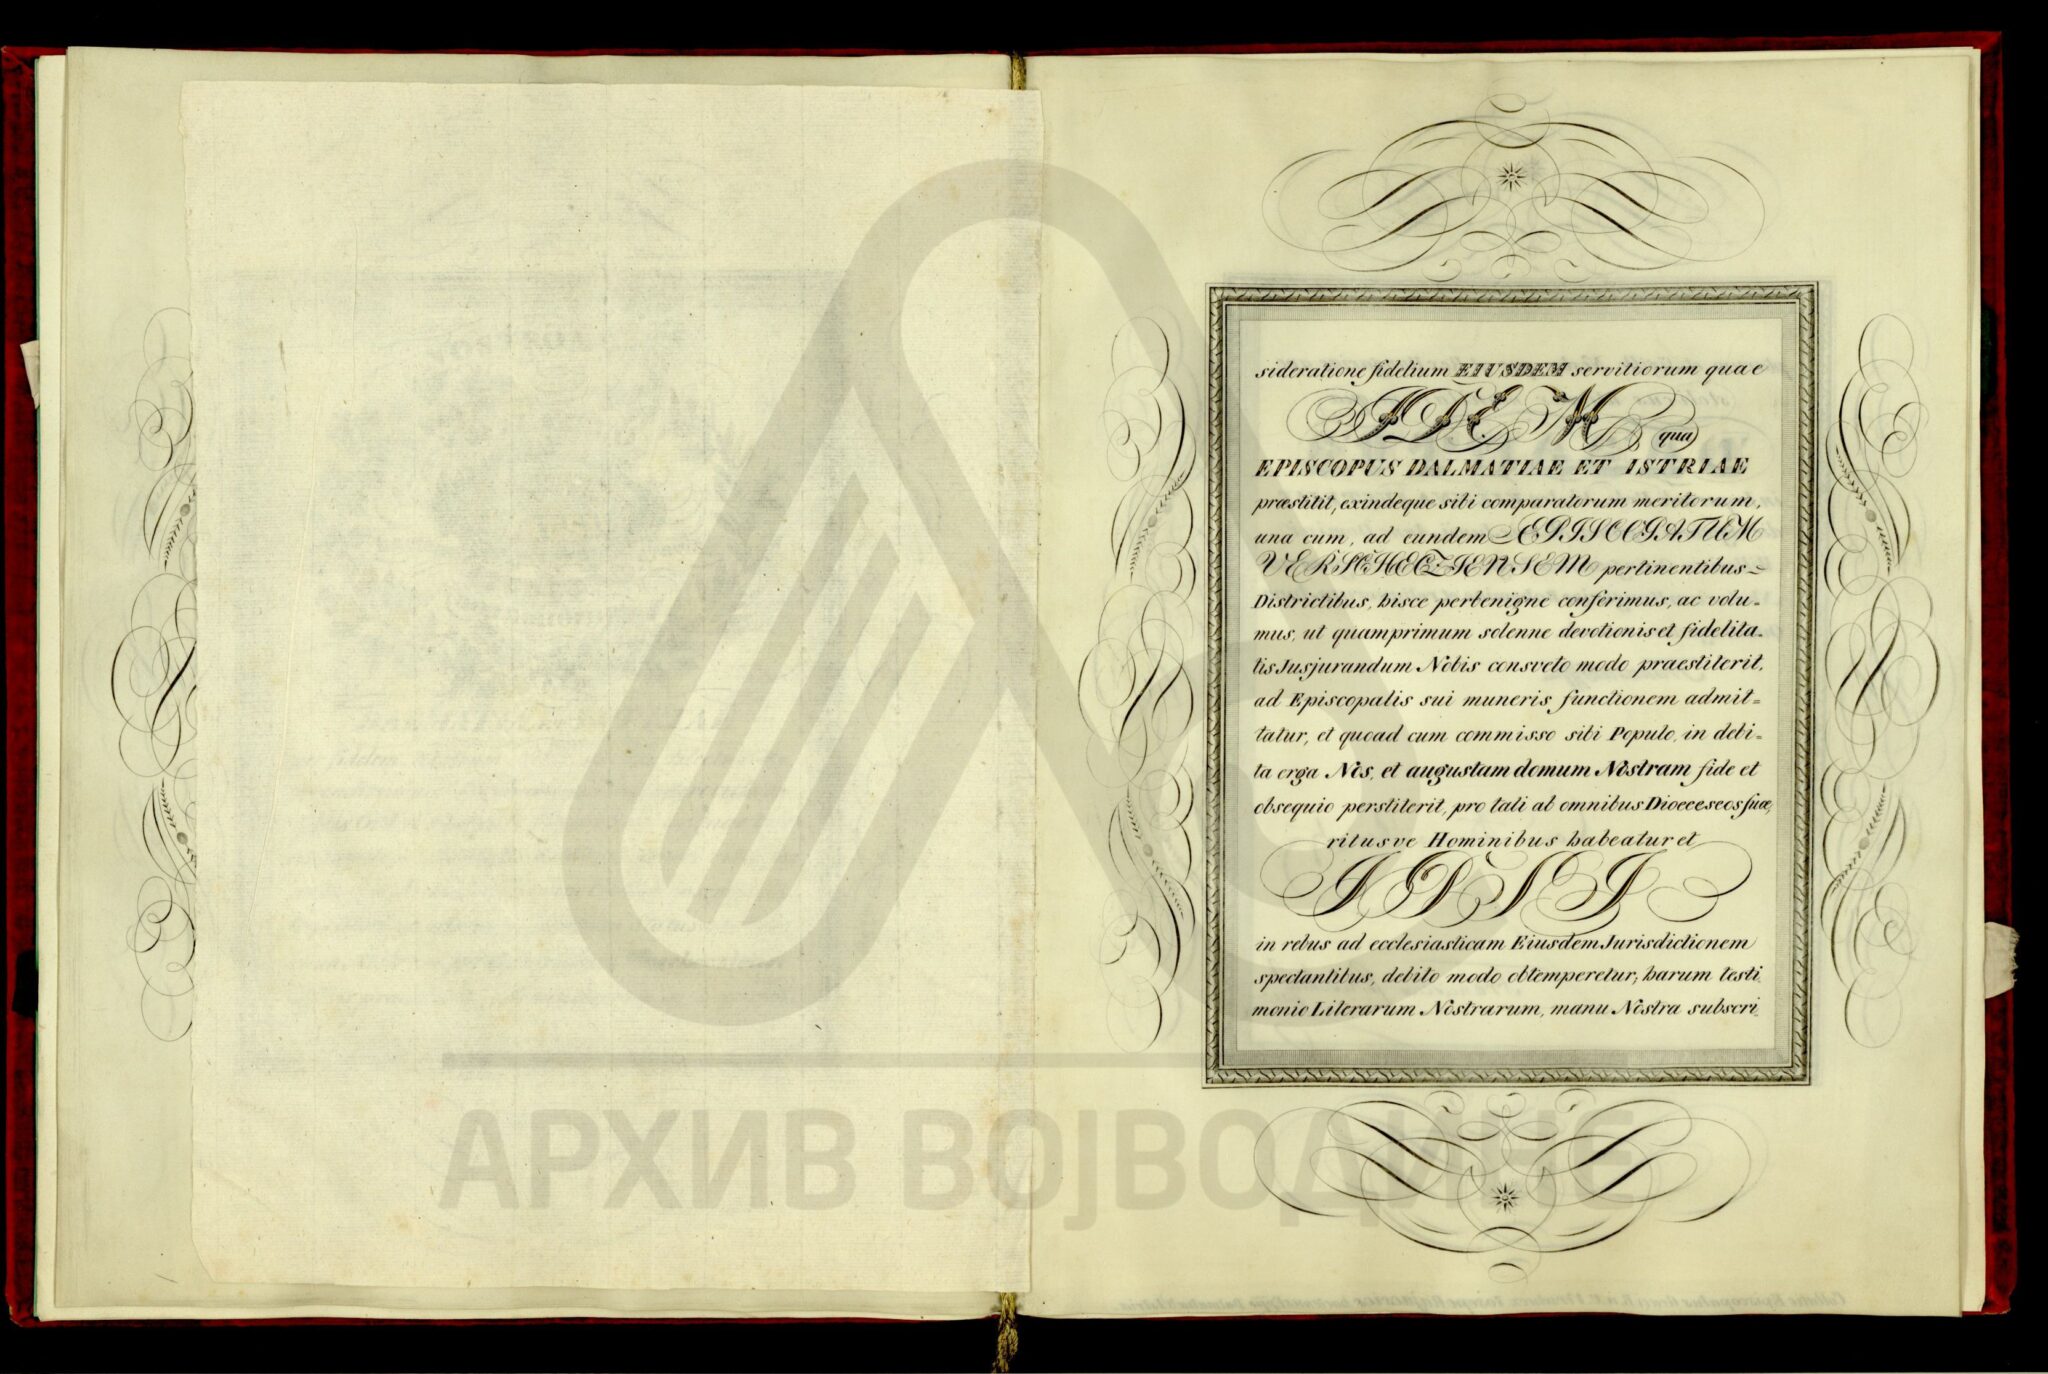 sideratione fidelium EIUSDEM servitiorum quae
IDEM
qua
EPISCOPUS DALMATIAE ET ISTRIAE
præstitit, exindeque sibi comparatorum meritorum,
una cum, ad eundem EPISCOPATUM
VERSCHECZIENSEM pertinentibus=
Districtibus, hisce perbenigne conferimus, ac volu=
mus, ut quamprimum solenne devotionis et fidelita=
tis Jusjurandum Nobis consveto modo praestiterit,
ad Episcopalis sui muneris functionem admit=
tatur, et quoad cum commisso sibi Populo, in debi=
ta erga Nos, et augustam domum Nostram fide et
obsequio perstiterit, pro tali ab omnibus Dioeceseos suæ,
ritusve Hominibus habeatur et
IPSI
in rebus ad ecclesiasticam Eiusdem Jurisdictionem
spectantibus, debito modo obtemperetur; harum testi
monio Literarum Nostrarum, manu Nostra subscri
АРХИВ ВОЈВОДИНЕ